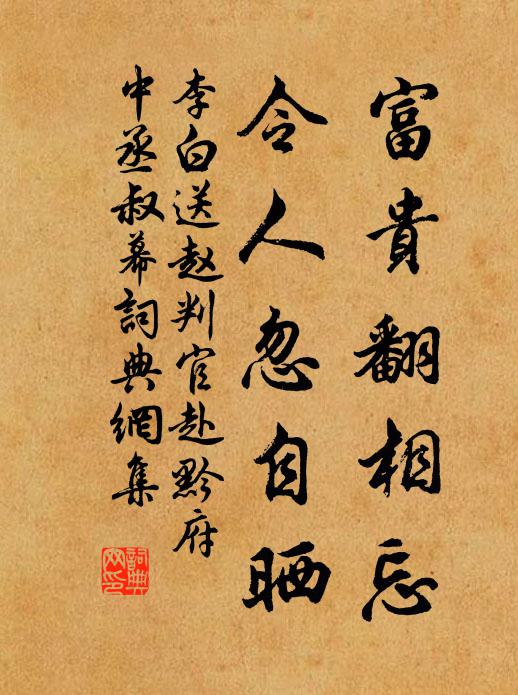 富貴翻相忘
令人忽自晒
李白送赵判官赴黔府
中丞叔幕詞典網集
詞典
网印